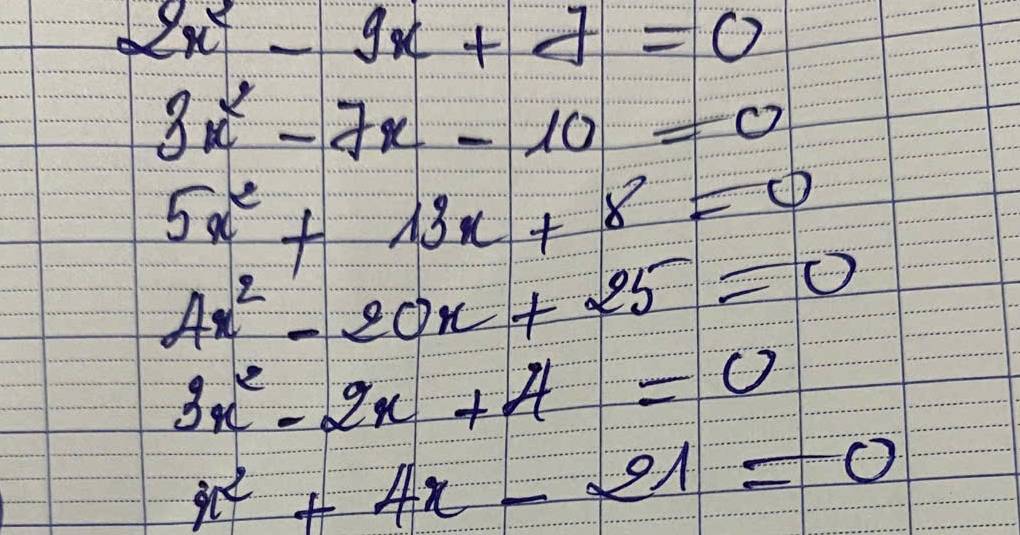 2x² - 9x + 7 = 0
3x² - 7x - 10 = 0
5x² + 13x + 8 = 0
4x² - 20x + 25 = 0
3x² - 2x + 4 = 0
x² + 4x - 21 = 0